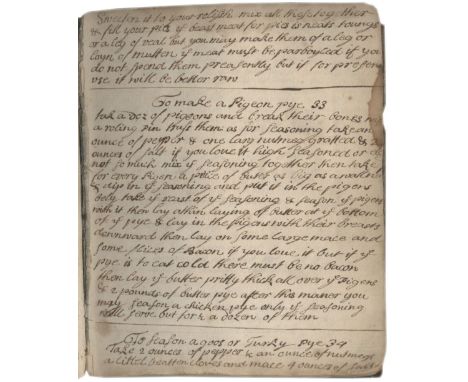 Sweeten it to your relish mix all these together
& fill your pies y best meat for pies is neats toungs
or a leg of veal but you may make them of a leg or
loyn of mutton y meat must be parboyled if you
do not spend them preasently but if for presen
use it will be better raw
To make a Pigeon pye 33
take a doz of pigeons and break their bones
a roling pin truss them as for seasoning take an
ounce of pepper & one larg nutmeg grated &
ounces of salt if you love it high seasoned or
not so much mix y seasoning together then take
for every Pigeon a peice of butter as big as a walnut
& dip in y seasoning and put it in the pigeons
bely take y rest of y seasoning & season y pigeons
with it then lay a thin laying of butter at y bottom
of y pye & lay in the pigeons with their breasts
downward then lay on some large mace and
some slices of Bacon if you love it but if y
pye is to eat cold there must be no bacon
then lay y butter pritty thick all over y Pigeons
& 2 pounds of butter pye after this maner you
may season a chicken pye only y seasoning
will serve but for a dozen of them
To season a goos or Turky Pye 34
Take 2 ounces of pepper & an ounce of nutmegs
a littel beatten cloves and mace 4 ounces of